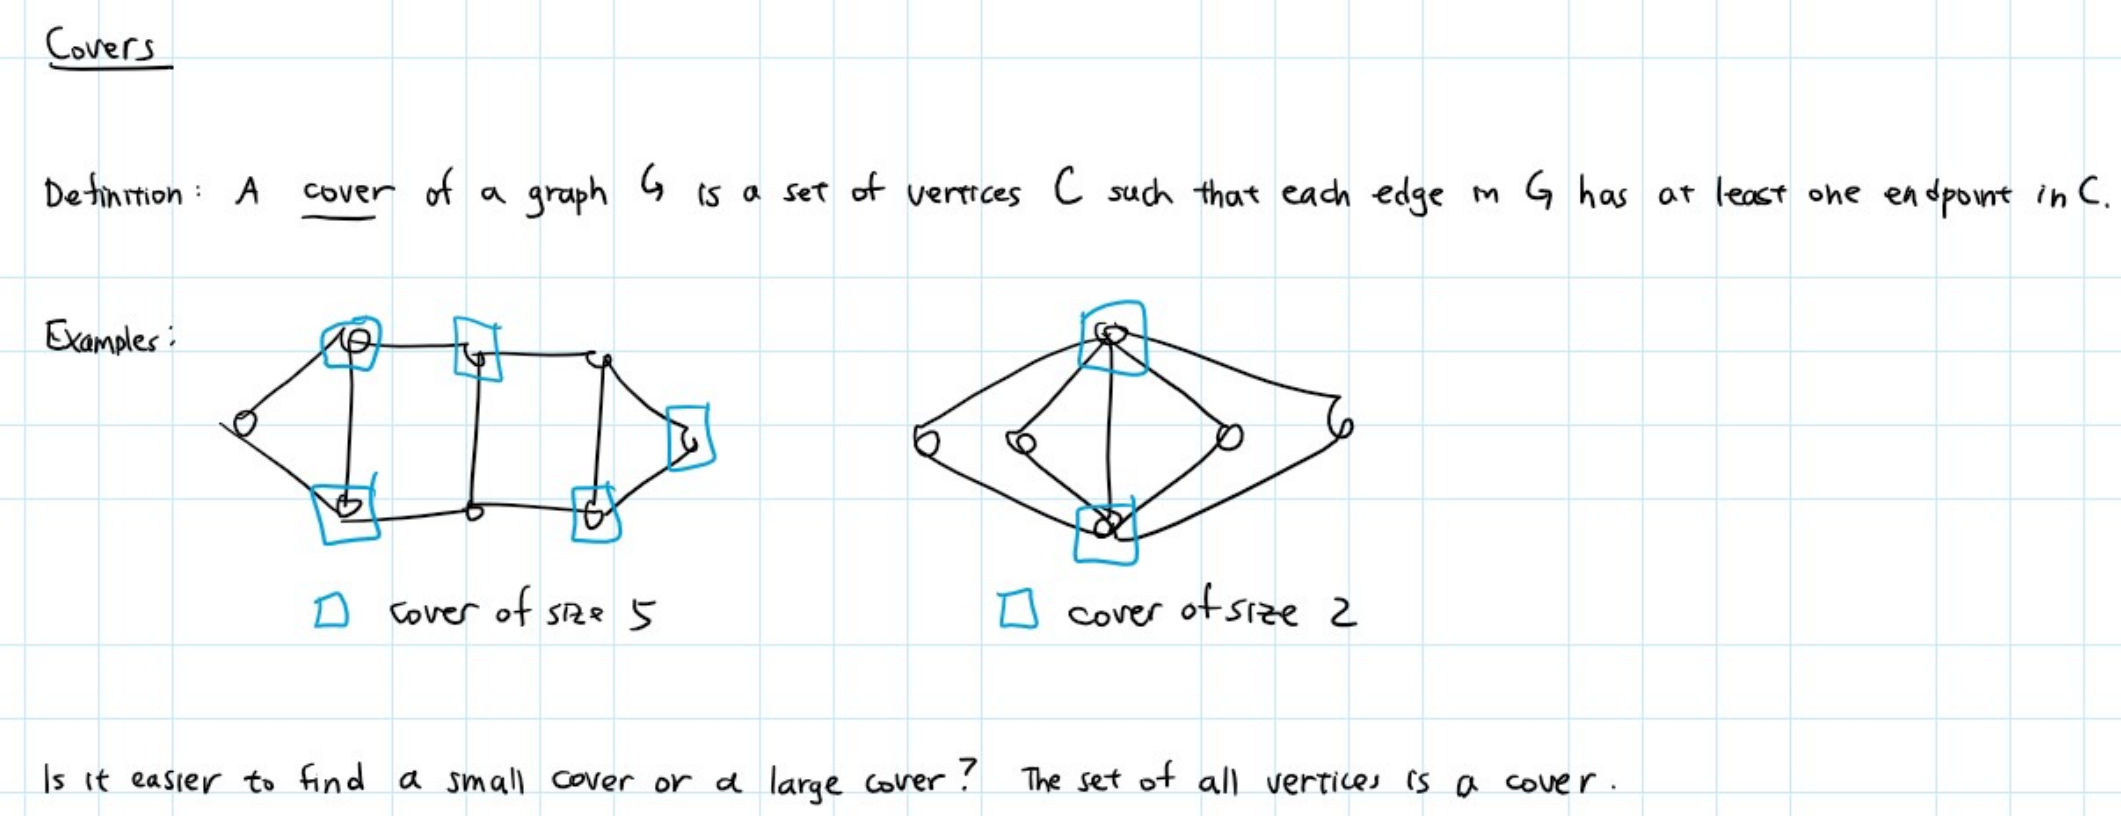 Covers
Definition: A cover of a graph G is a set of vertices C such that each edge in G has at least one endpoint in C.
Examples:
cover of size 5
cover of size 2
Is it easier to find a small cover or a large cover? The set of all vertices is a cover.